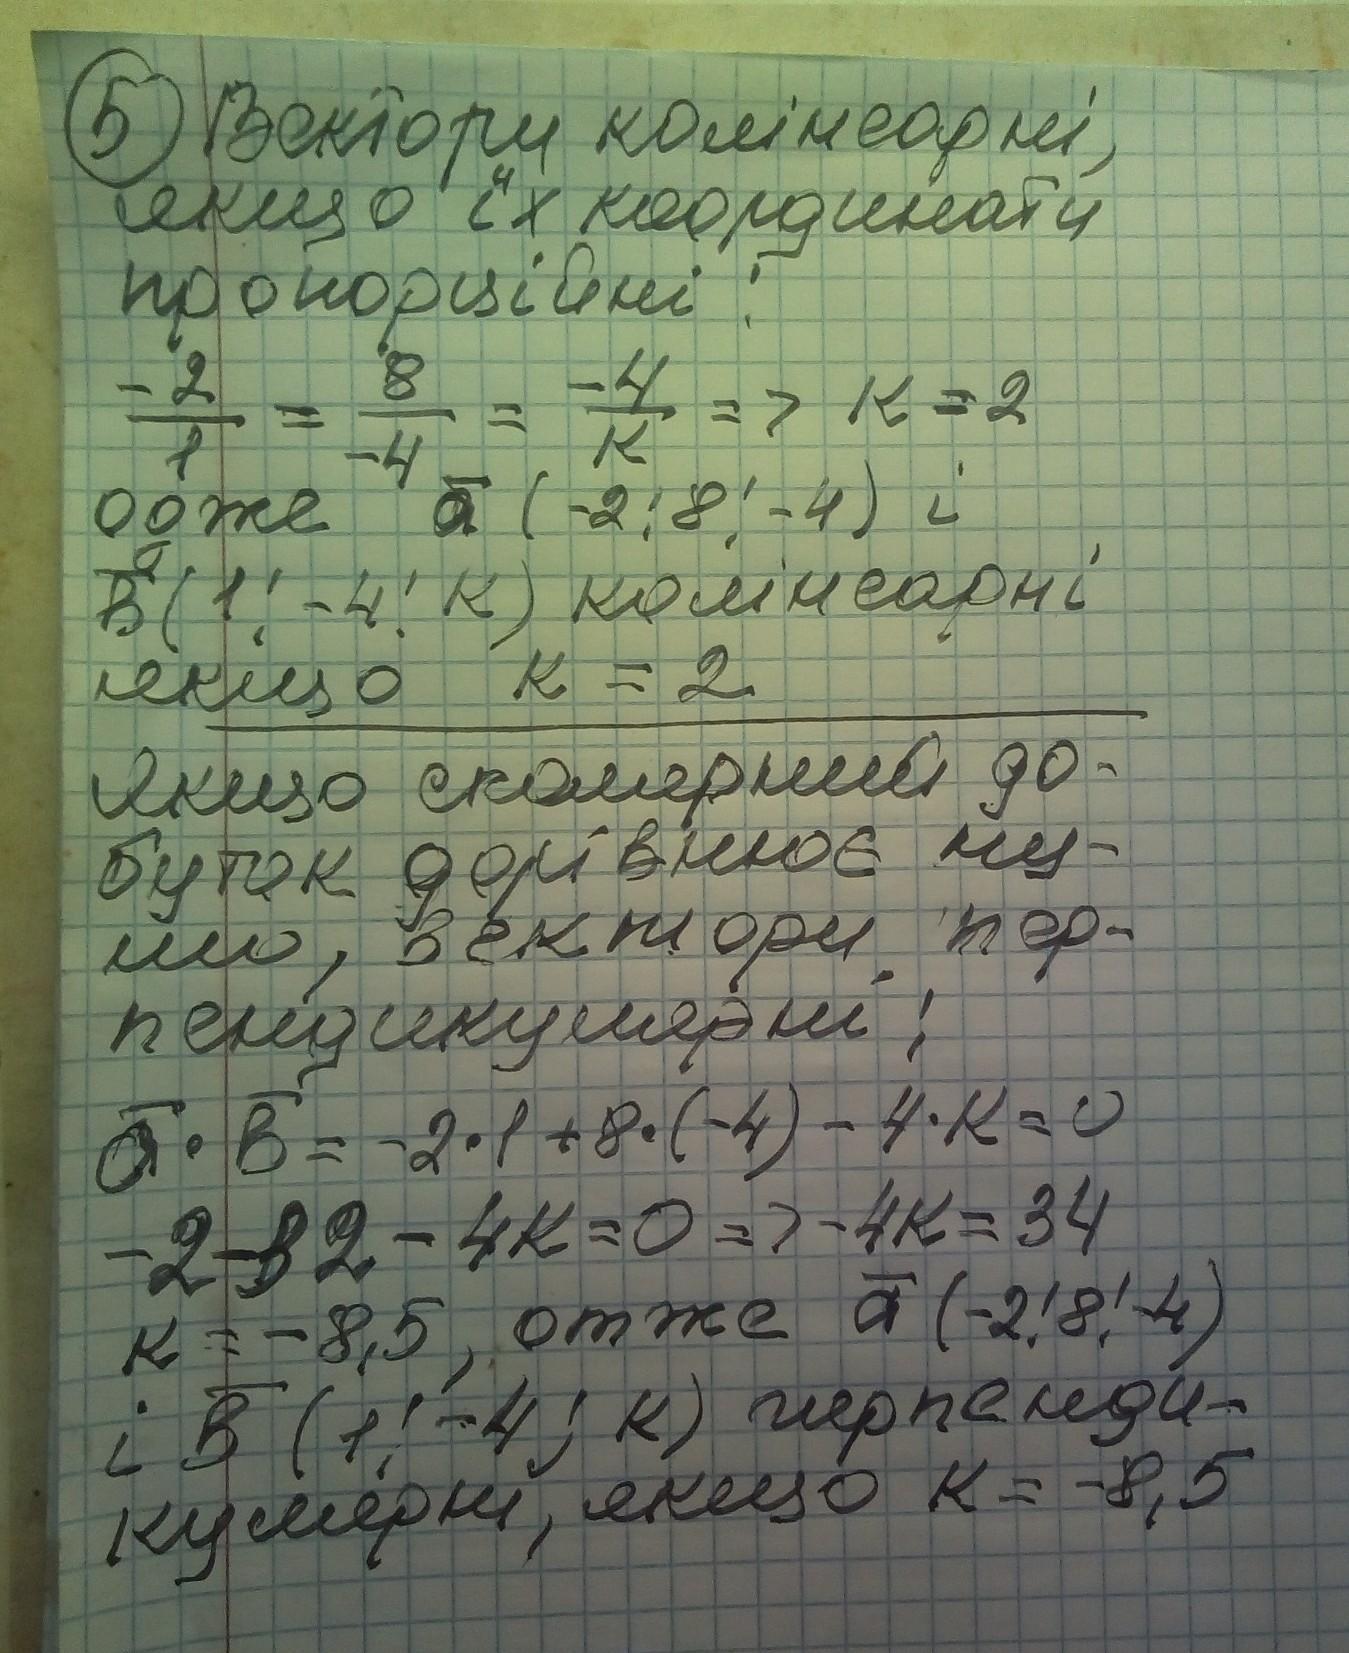 5 Вектори колінеарні,
якщо їх координати
пропорційні:
-2/1 = 8/-4 = -4/к => к = 2
отже a̅ (-2; 8; -4) і
в̅ (1; -4; к) колінеарні
якщо к = 2
Якщо скалярний до-
буток дорівнює ну-
лю, вектори пер-
пендикулярні:
a̅ · в̅ = -2·1 + 8·(-4) - 4·к = 0
-2-32 - 4к = 0 => -4к = 34
к = -8,5, отже a̅ (-2; 8; -4)
і в̅ (1; -4; к) перпенди-
кулярні, якщо к = -8,5